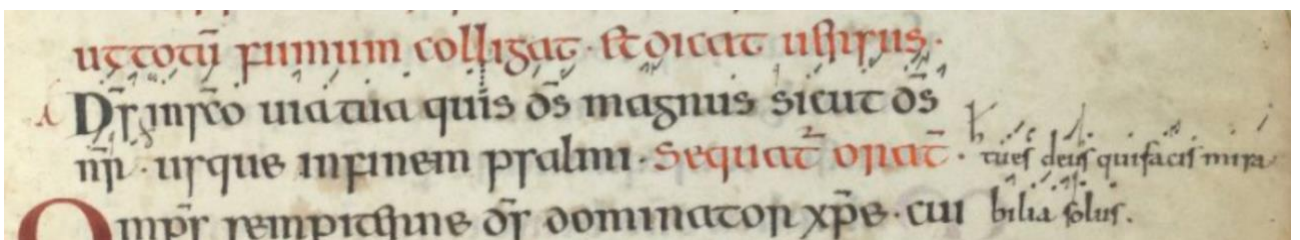 ut totū fumum colligat · et dicat uersus ·
A Ds̄ in sc̄o uia tua quis ds̄ magnus sicut ds̄
nr̄ · usque in finem psalmi · Sequat̄ orat̄ · tu es deus qui facis mira
Omps̄ sempiterne ds̄ dominator xp̄e · cui bilia solus.